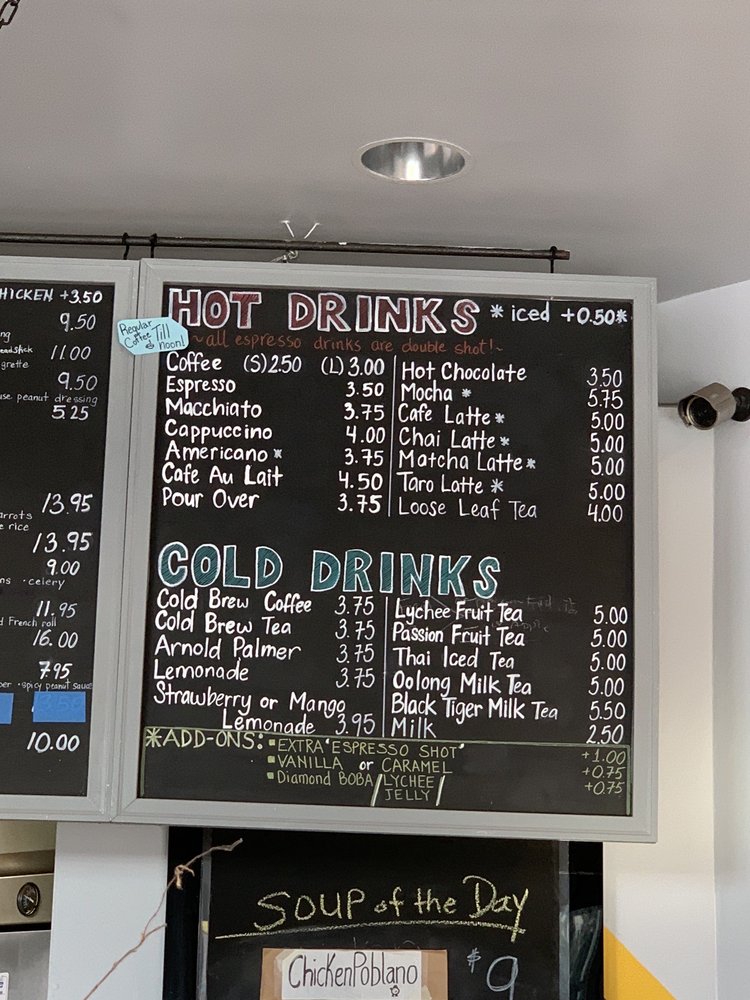 HICKEN +3.50
9.50
11.00
grette
9.50
use peanut dressing
5.25
13.95
arrots
e rice
13.95
9.00
celery
11.95
d French roll
16.00
7.95
spicy peanut sauce
10.00
Regular Coffee Till noon!
HOT DRINKS *iced +0.50*
~all espresso drinks are double shot!~
Coffee (S)2.50 (L)3.00
Espresso 3.50
Macchiato 3.75
Cappuccino 4.00
Americano* 3.75
Cafe Au Lait 4.50
Pour Over 3.75
Hot Chocolate 3.50
Mocha * 5.75
Cafe Latte* 5.00
Chai Latte* 5.00
Matcha Latte* 5.00
Taro Latte * 5.00
Loose Leaf Tea 4.00
COLD DRINKS
Cold Brew Coffee 3.75
Cold Brew Tea 3.75
Arnold Palmer 3.75
Lemonade 3.75
Strawberry or Mango
Lemonade 3.95
Lychee Fruit Tea 5.00
Passion Fruit Tea 5.00
Thai Iced Tea 5.00
Oolong Milk Tea 5.00
Black Tiger Milk Tea 5.50
Milk 2.50
*ADD-ONS: ▪EXTRA ESPRESSO SHOT +1.00
▪VANILLA or CARAMEL +0.75
▪Diamond BOBA/LYCHEE JELLY/ +0.75
SOUP of the Day
Chicken Poblano $9